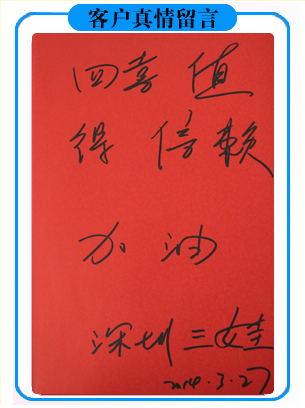 客户真情留言
四喜 值
得 信赖
加油
深圳三娃
2014.3.27